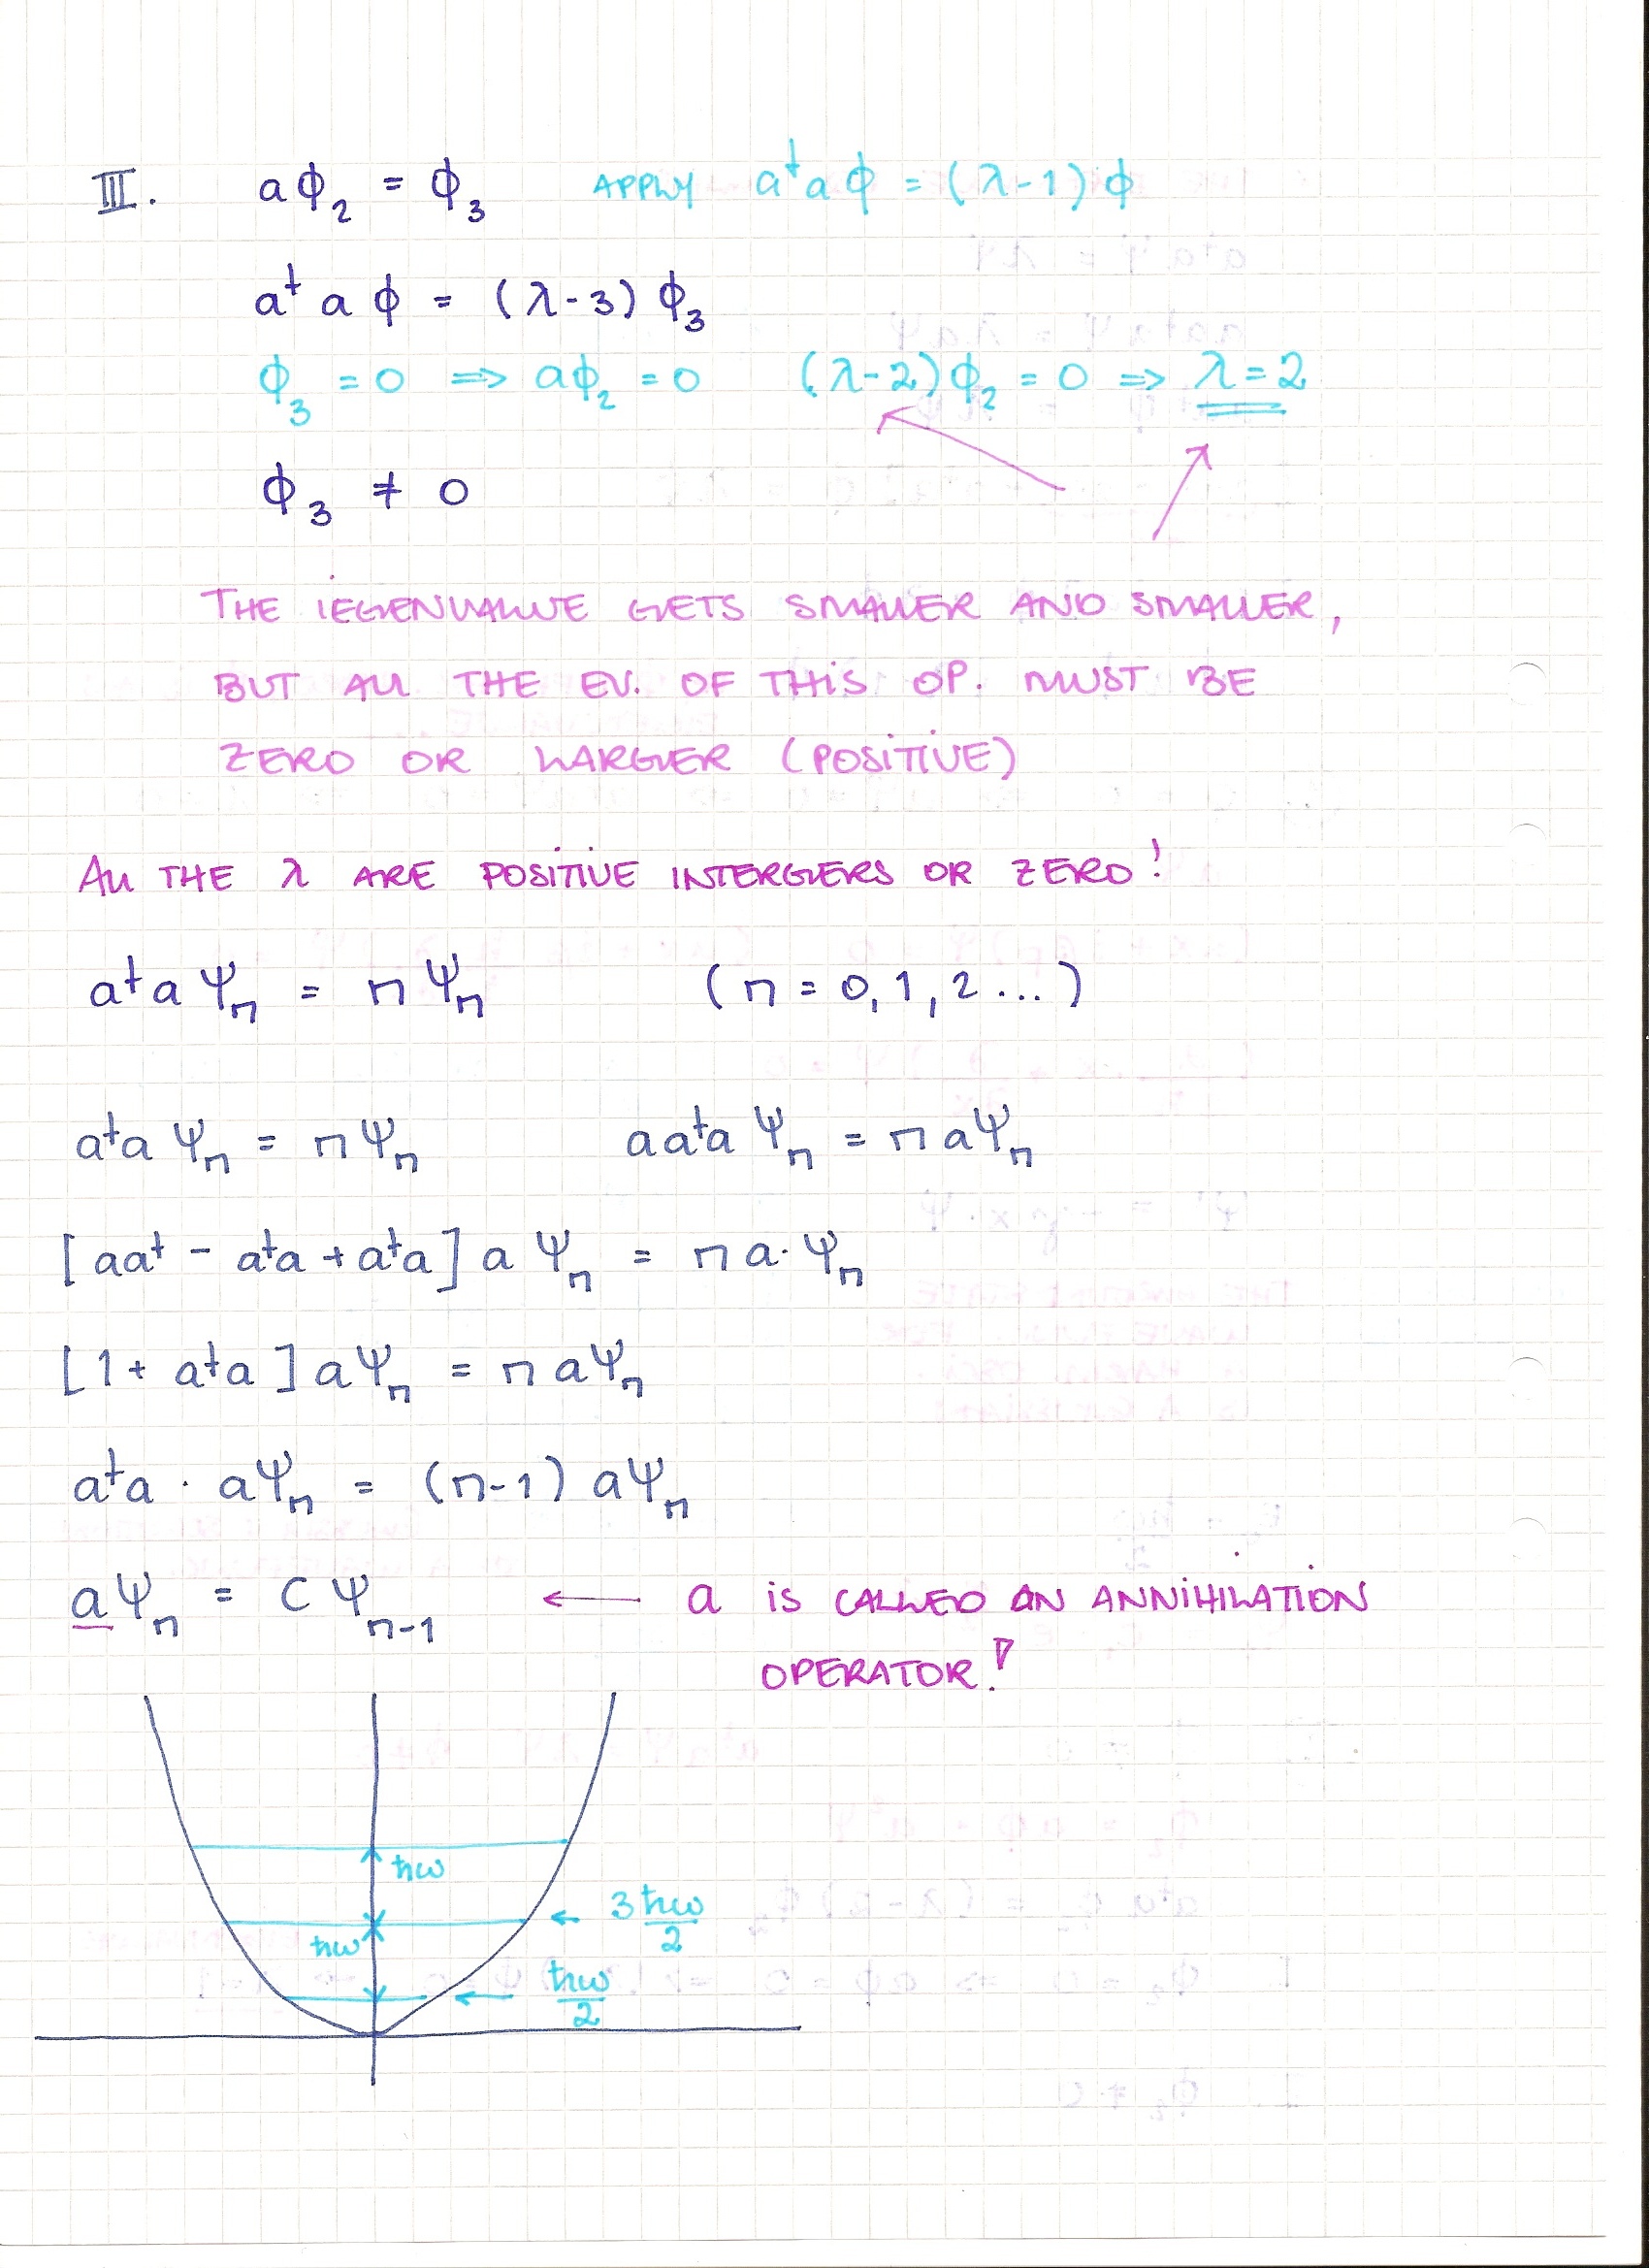 III. aϕ₂ = ϕ₃ APPLY a†aϕ = (λ-1)ϕ
a†aϕ = (λ-3)ϕ₃
ϕ₃ = 0 ⇒ aϕ₂ = 0 (λ-2)ϕ₂ = 0 ⇒ λ=2
ϕ₃ ≠ 0
THE IEGENVALUE GETS SMALLER AND SMALLER,
BUT ALL THE EV. OF THIS OP. MUST BE
ZERO OR LARGER (POSITIVE)
ALL THE λ ARE POSITIVE INTERGERS OR ZERO!
a†aΨₙ = nΨₙ (n = 0, 1, 2 ...)
a†aΨₙ = nΨₙ aa†aΨₙ = naΨₙ
[aa† - a†a + a†a] aΨₙ = na·Ψₙ
[1 + a†a] aΨₙ = naΨₙ
a†a · aΨₙ = (n-1) aΨₙ
aΨₙ = CΨₙ₋₁ ← a IS CALLED AN ANNIHILATION
OPERATOR!
ħω
← 3ħω/2
ħω
← ħω/2